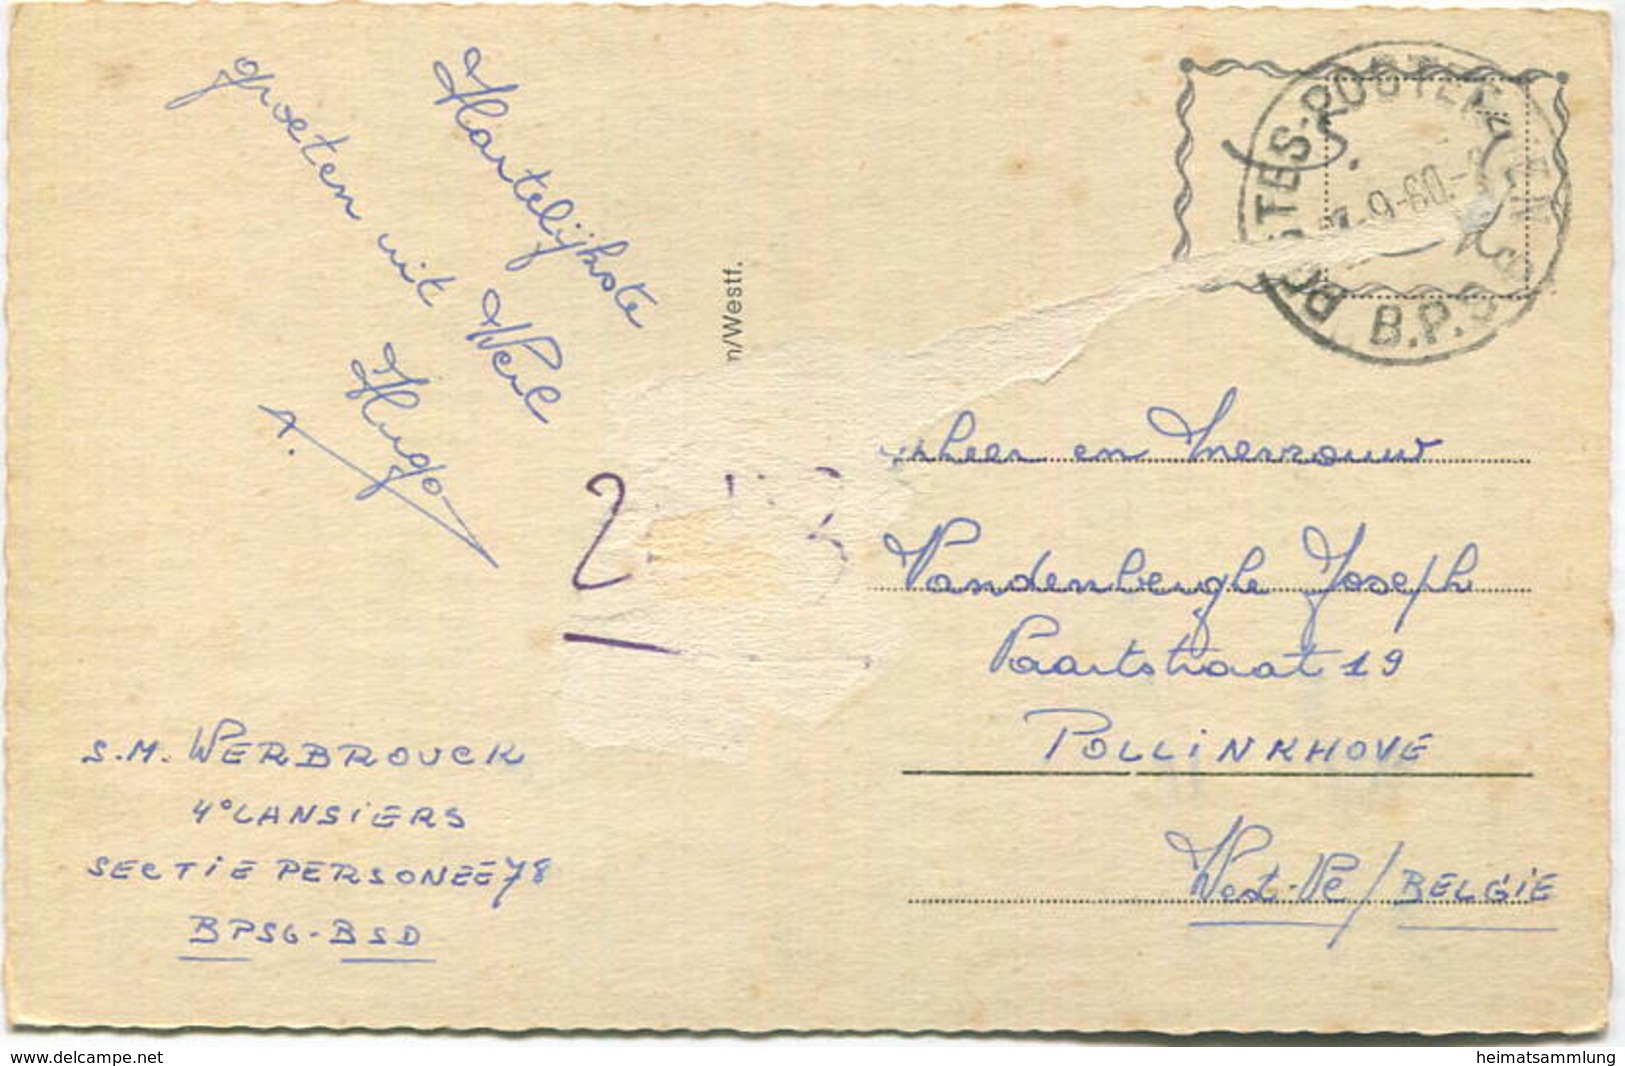 Hartelijkste
groeten uit Werl
Hugo
n/Westf.
POSTES-POSTERIJEN
-9-60
B.P.S
heer en Mevrouw
Vandenberghe Joseph
Paartstraat 19
POLLINKHOVE
West-Vl / BELGIE
S.M. WERBROUCK
4° LANSIERS
SECTIE PERSONEEL
BPS6-BSD
www.delcampe.net
heimatsammlung